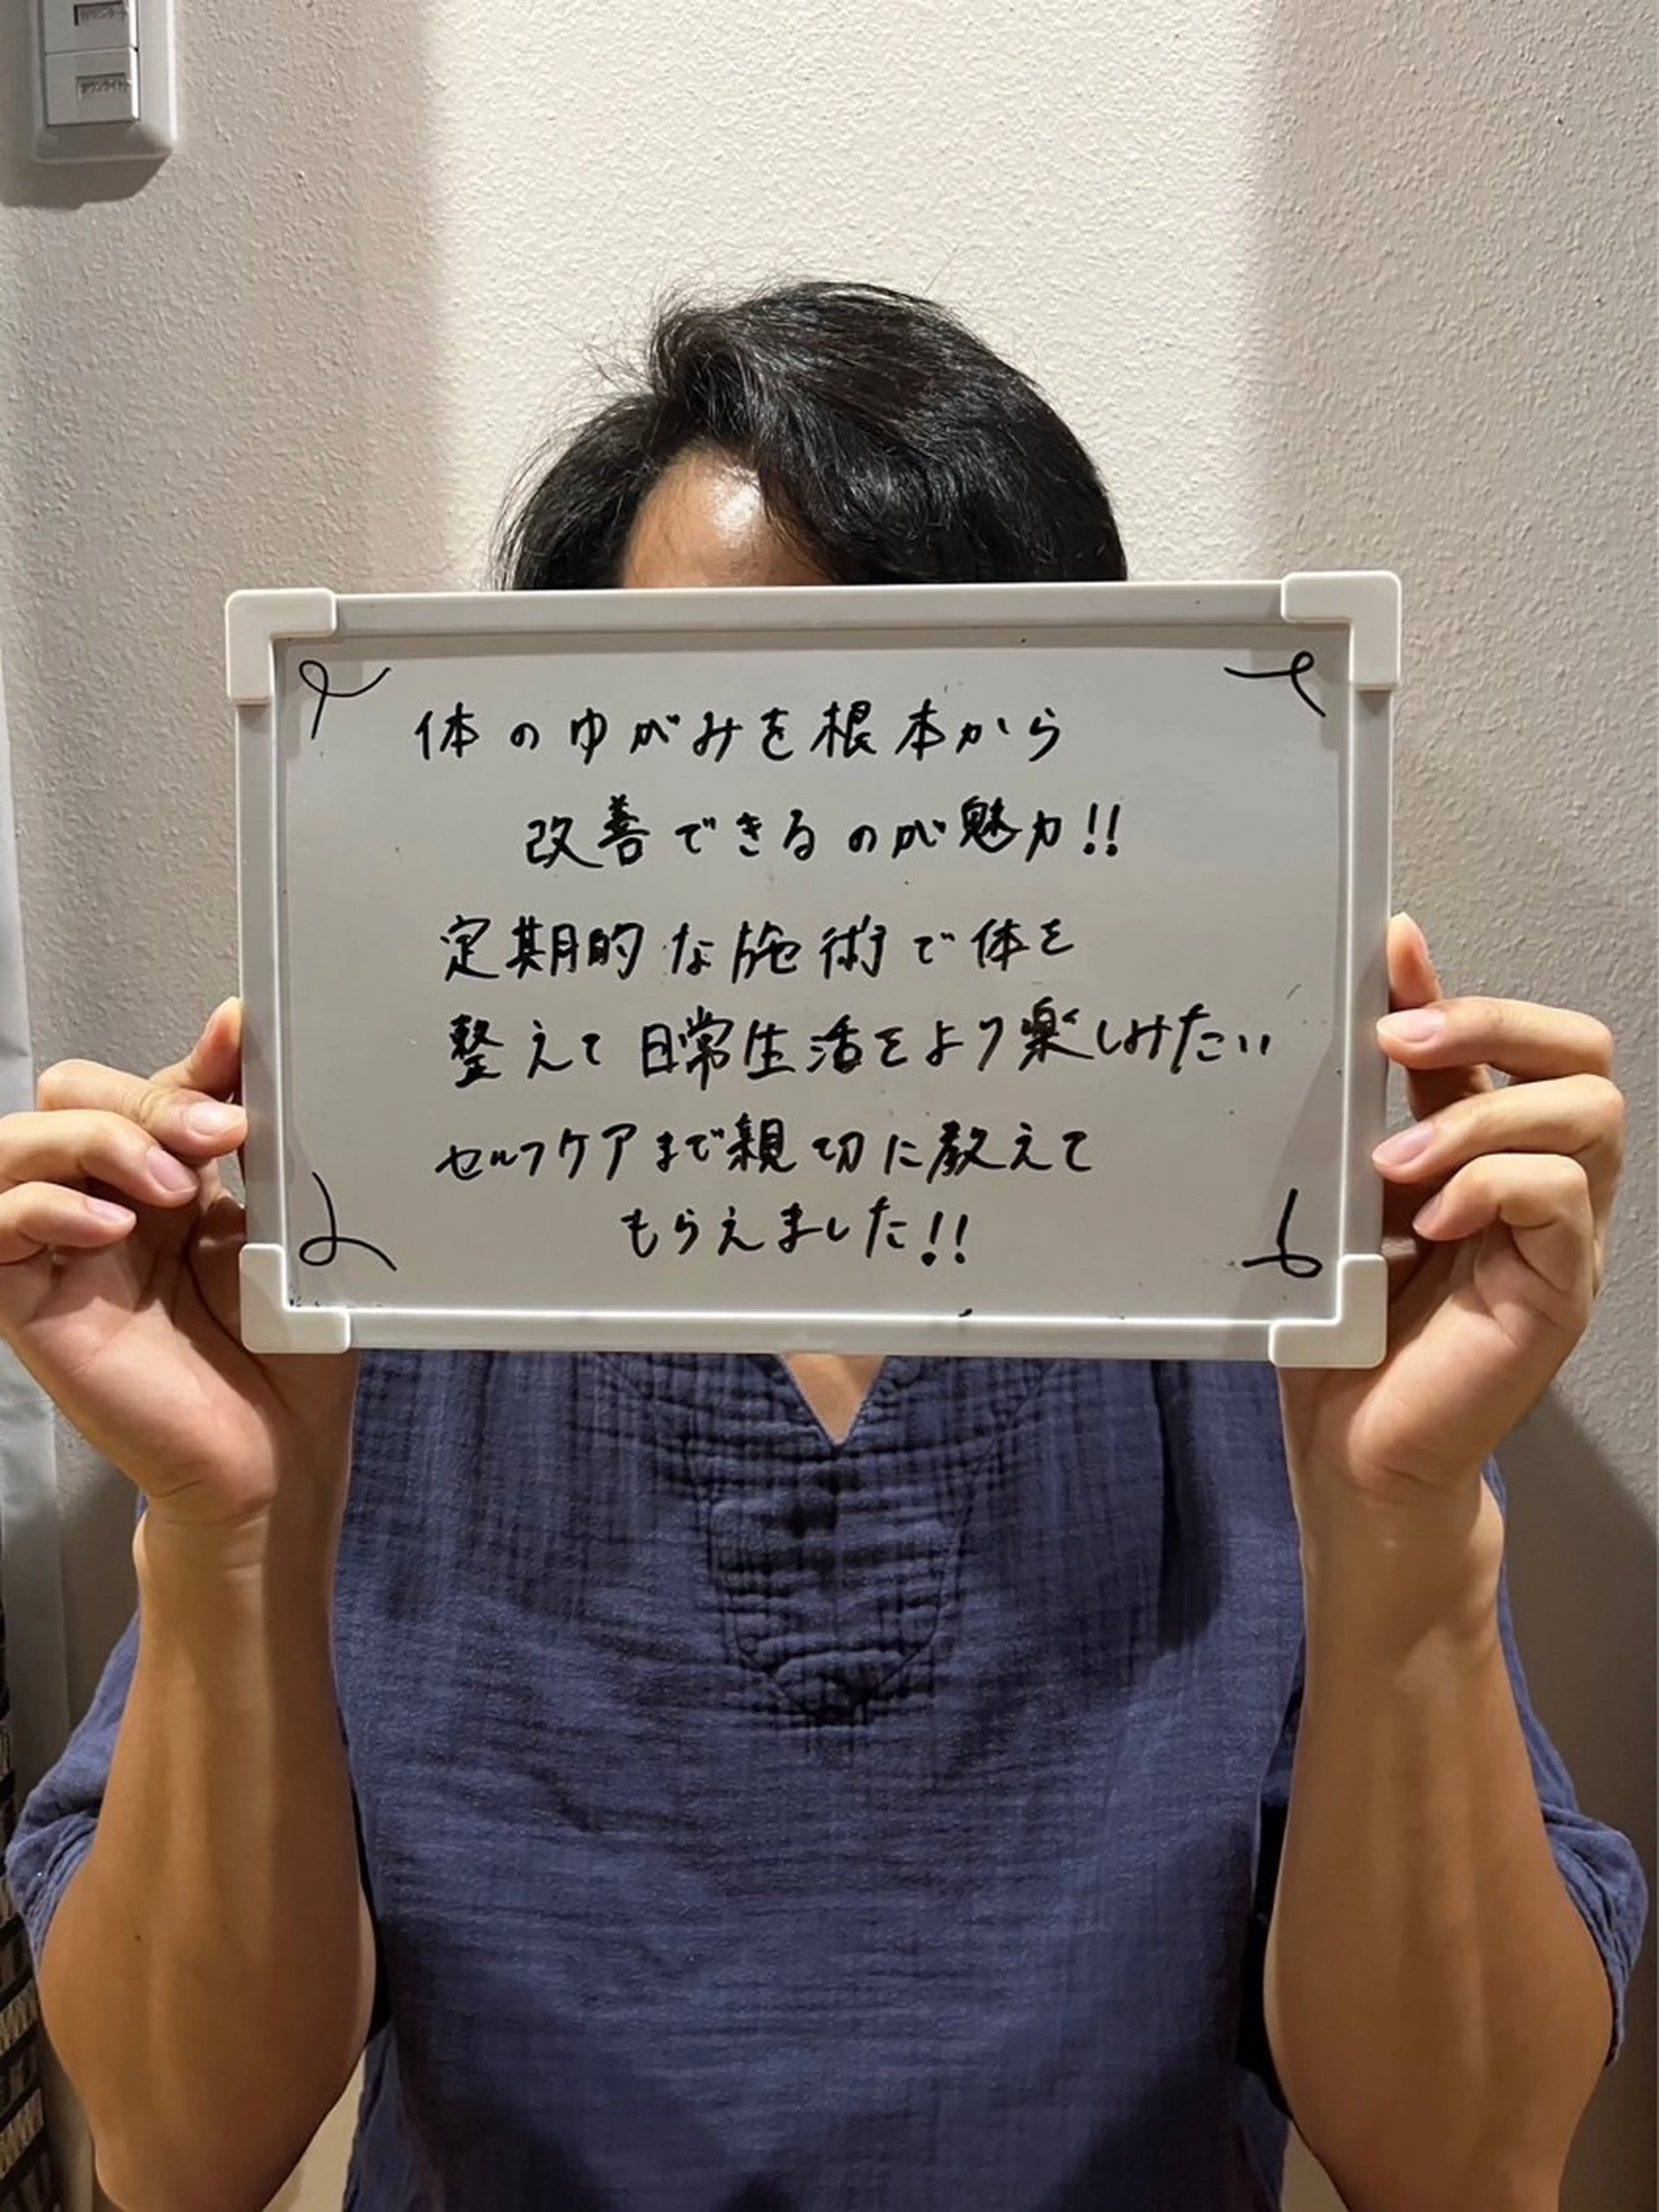 ダウンライト
体のゆがみを根本から
改善できるのが魅力!!
定期的な施術で体を
整えて日常生活をより楽しみたい
セルフケアまで親切に教えて
もらえました!!